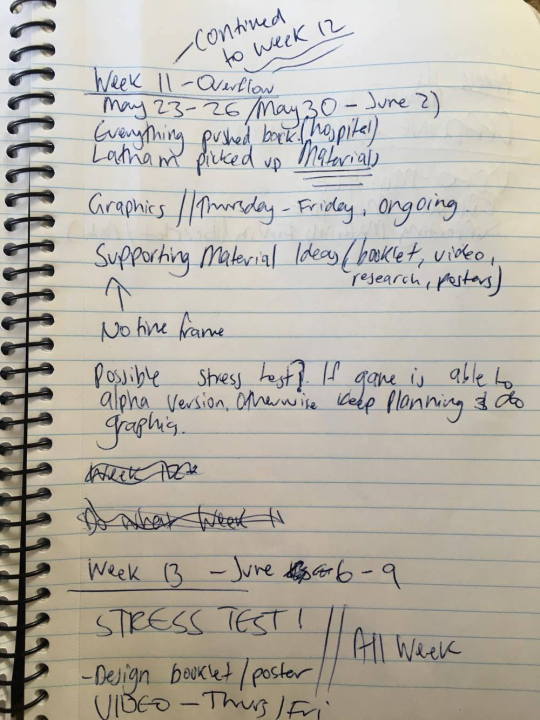 continued
to Week 12
Week 11 - Overflow
May 23-26 /May 30 - June 2)
Everything pushed back (hospital)
Latham picked up Materials
Graphics //Thursday - Friday, ongoing
Supporting Material Ideas (booklet, video,
research, posters)
No time frame
Possible stress test? If game is able to
alpha version, otherwise keep planning & do
graphics.
Week 13 - June 6 - 9
STRESS TEST!
All Week
-Design booklet/poster
VIDEO - Thurs/Fri